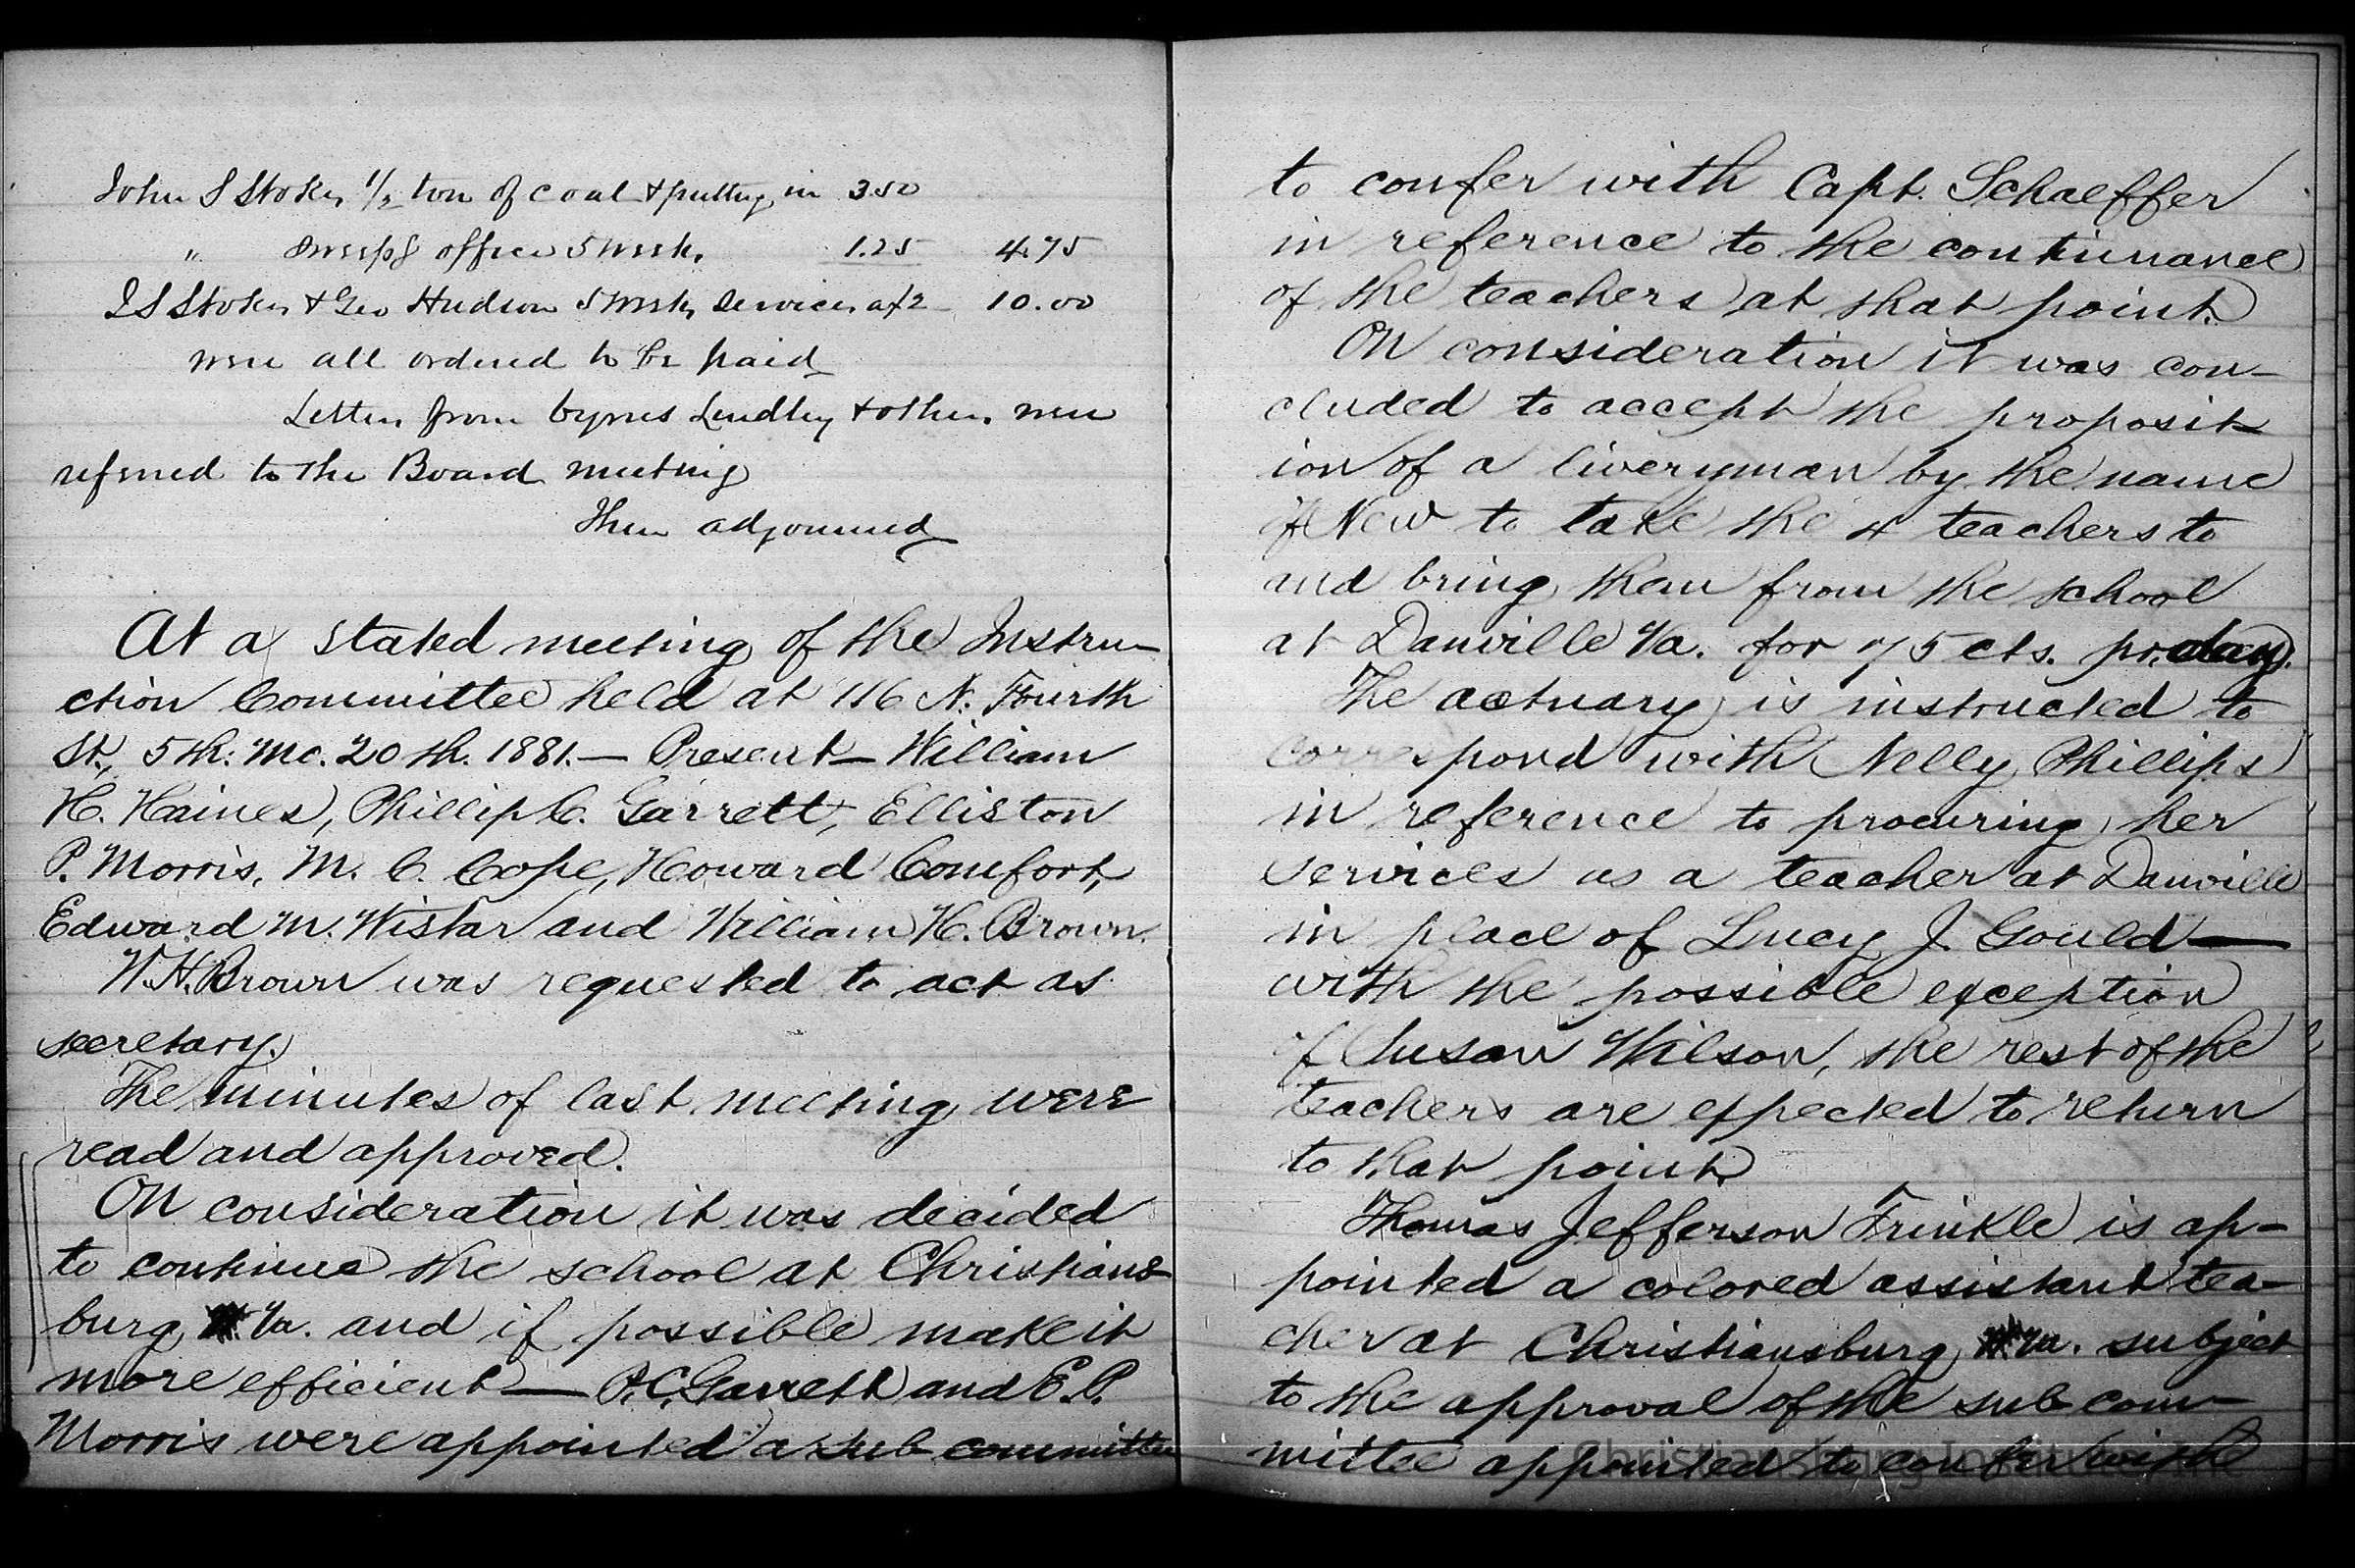 John S Stokes 1/2 ton of coal & putting in 3.50
" Sweepg office 5 weeks 1.25 4.75
J S Stokes & Geo Hudson 5 weeks services a/ 2 10.00
were all ordered to be paid
Letters from Lindley & others were
referred to the Board meeting
Then adjourned
At a stated meeting of the Instru-
ction Committee held at 116 N. Fourth
St., 5th. Mo. 20th. 1881.— Present— William
H. Haines, Phillip C. Garrett, Elliston
P. Morris, M. C. Cope, Howard Comfort,
Edward M. Wistar and William H. Brown.
W.H. Brown was requested to act as
secretary.
The minutes of last meeting were
read and approved.
On consideration it was decided
to continue the school at Christians-
burg, Va. and if possible make it
more efficient— P.C. Garrett and E.P.
Morris were appointed a sub committee
to confer with Capt. Schaeffer
in reference to the continuance
of the teachers at that point.
On consideration it was con-
cluded to accept the proposit-
ion of a liveryman by the name
of New to take the 4 teachers to
and bring them from the school
at Danville Va. for 75 cts. pr. day.
The actuary is instructed to
correspond with Nelly Phillips
in reference to procuring her
services as a teacher at Danville
in place of Lucy J. Gould—
with the possible exception
of Susan Wilson, the rest of the
teachers are expected to return
to that point.
Thomas Jefferson Frinkle is ap-
pointed a colored assistant tea-
cher at Christiansburg, Va. subject
to the approval of the sub com-
mittee appointed to confer with
Christiansburg Institute, Inc